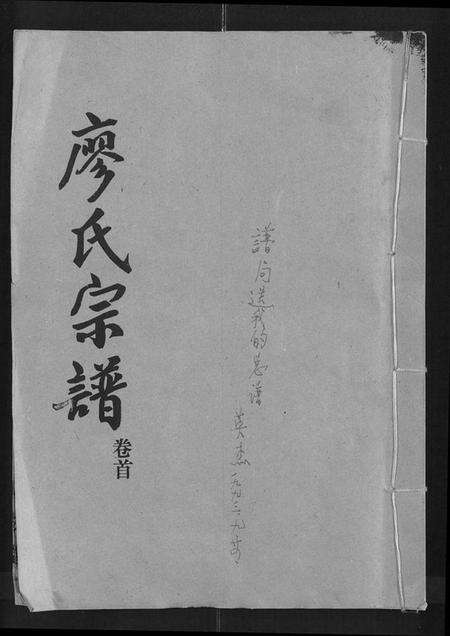 廖氏宗譜
卷首
譜局送我的总谱 英杰 一九九三、九、廿